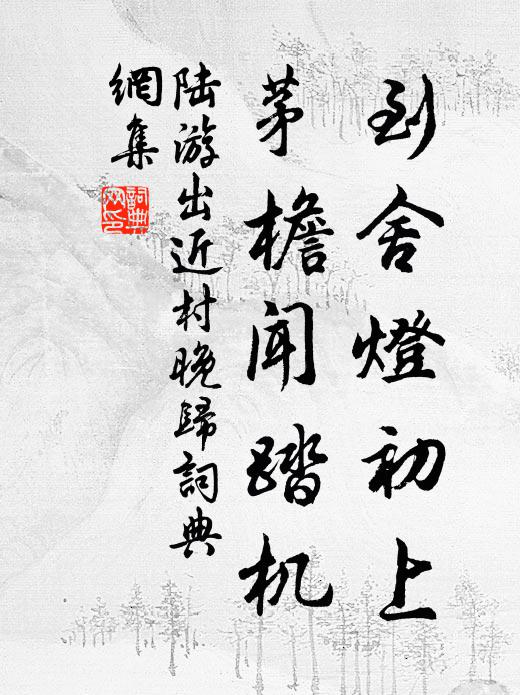 到舍燈初上
茅檐聞踏机
陆游出近村晚歸詞典
網集
詞典
网印